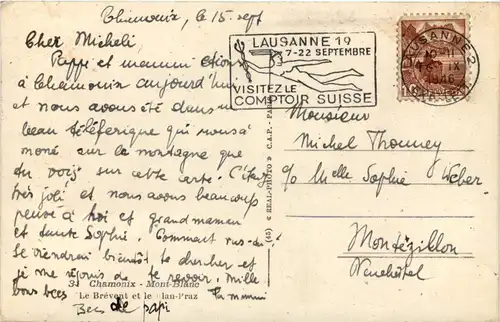 Chamonix, le 15. sept
Cher Micheli
Pappi et mammi étions
à Chamonix aujourd'hui
et nous avons été dans
beau téléferique qui nous a
moné sur la montagne que
du vois sur cette carte. C'était
très joli et nous avons beaucoup
pensé à toi et grand maman
et tante Sophie. Comment vas-du?
Je viendrai bientôt te chercher et
je me réjouis de te revoir. Mille
bons becs la mammi
Becs de papi
34 Chamonix - Mont-Blanc
Le Brévent et le Plan-Praz
(45) « REAL-PHOTO » C.A.P. - PARIS
LAUSANNE 19
7-22 SEPTEMBRE
VISITEZ LE
COMPTOIR SUISSE
LAUSANNE 2
IX
Monsieur
Michel Thonney
c/o Melle Sophie Weber
Montézillon
Neuchâtel